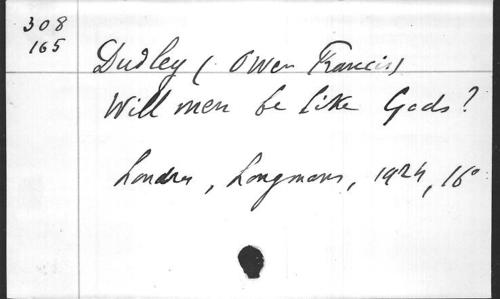 308
165
Dudley (Owen Francis)
Will men be like Gods?
Londres, Longmans, 1924, 16°